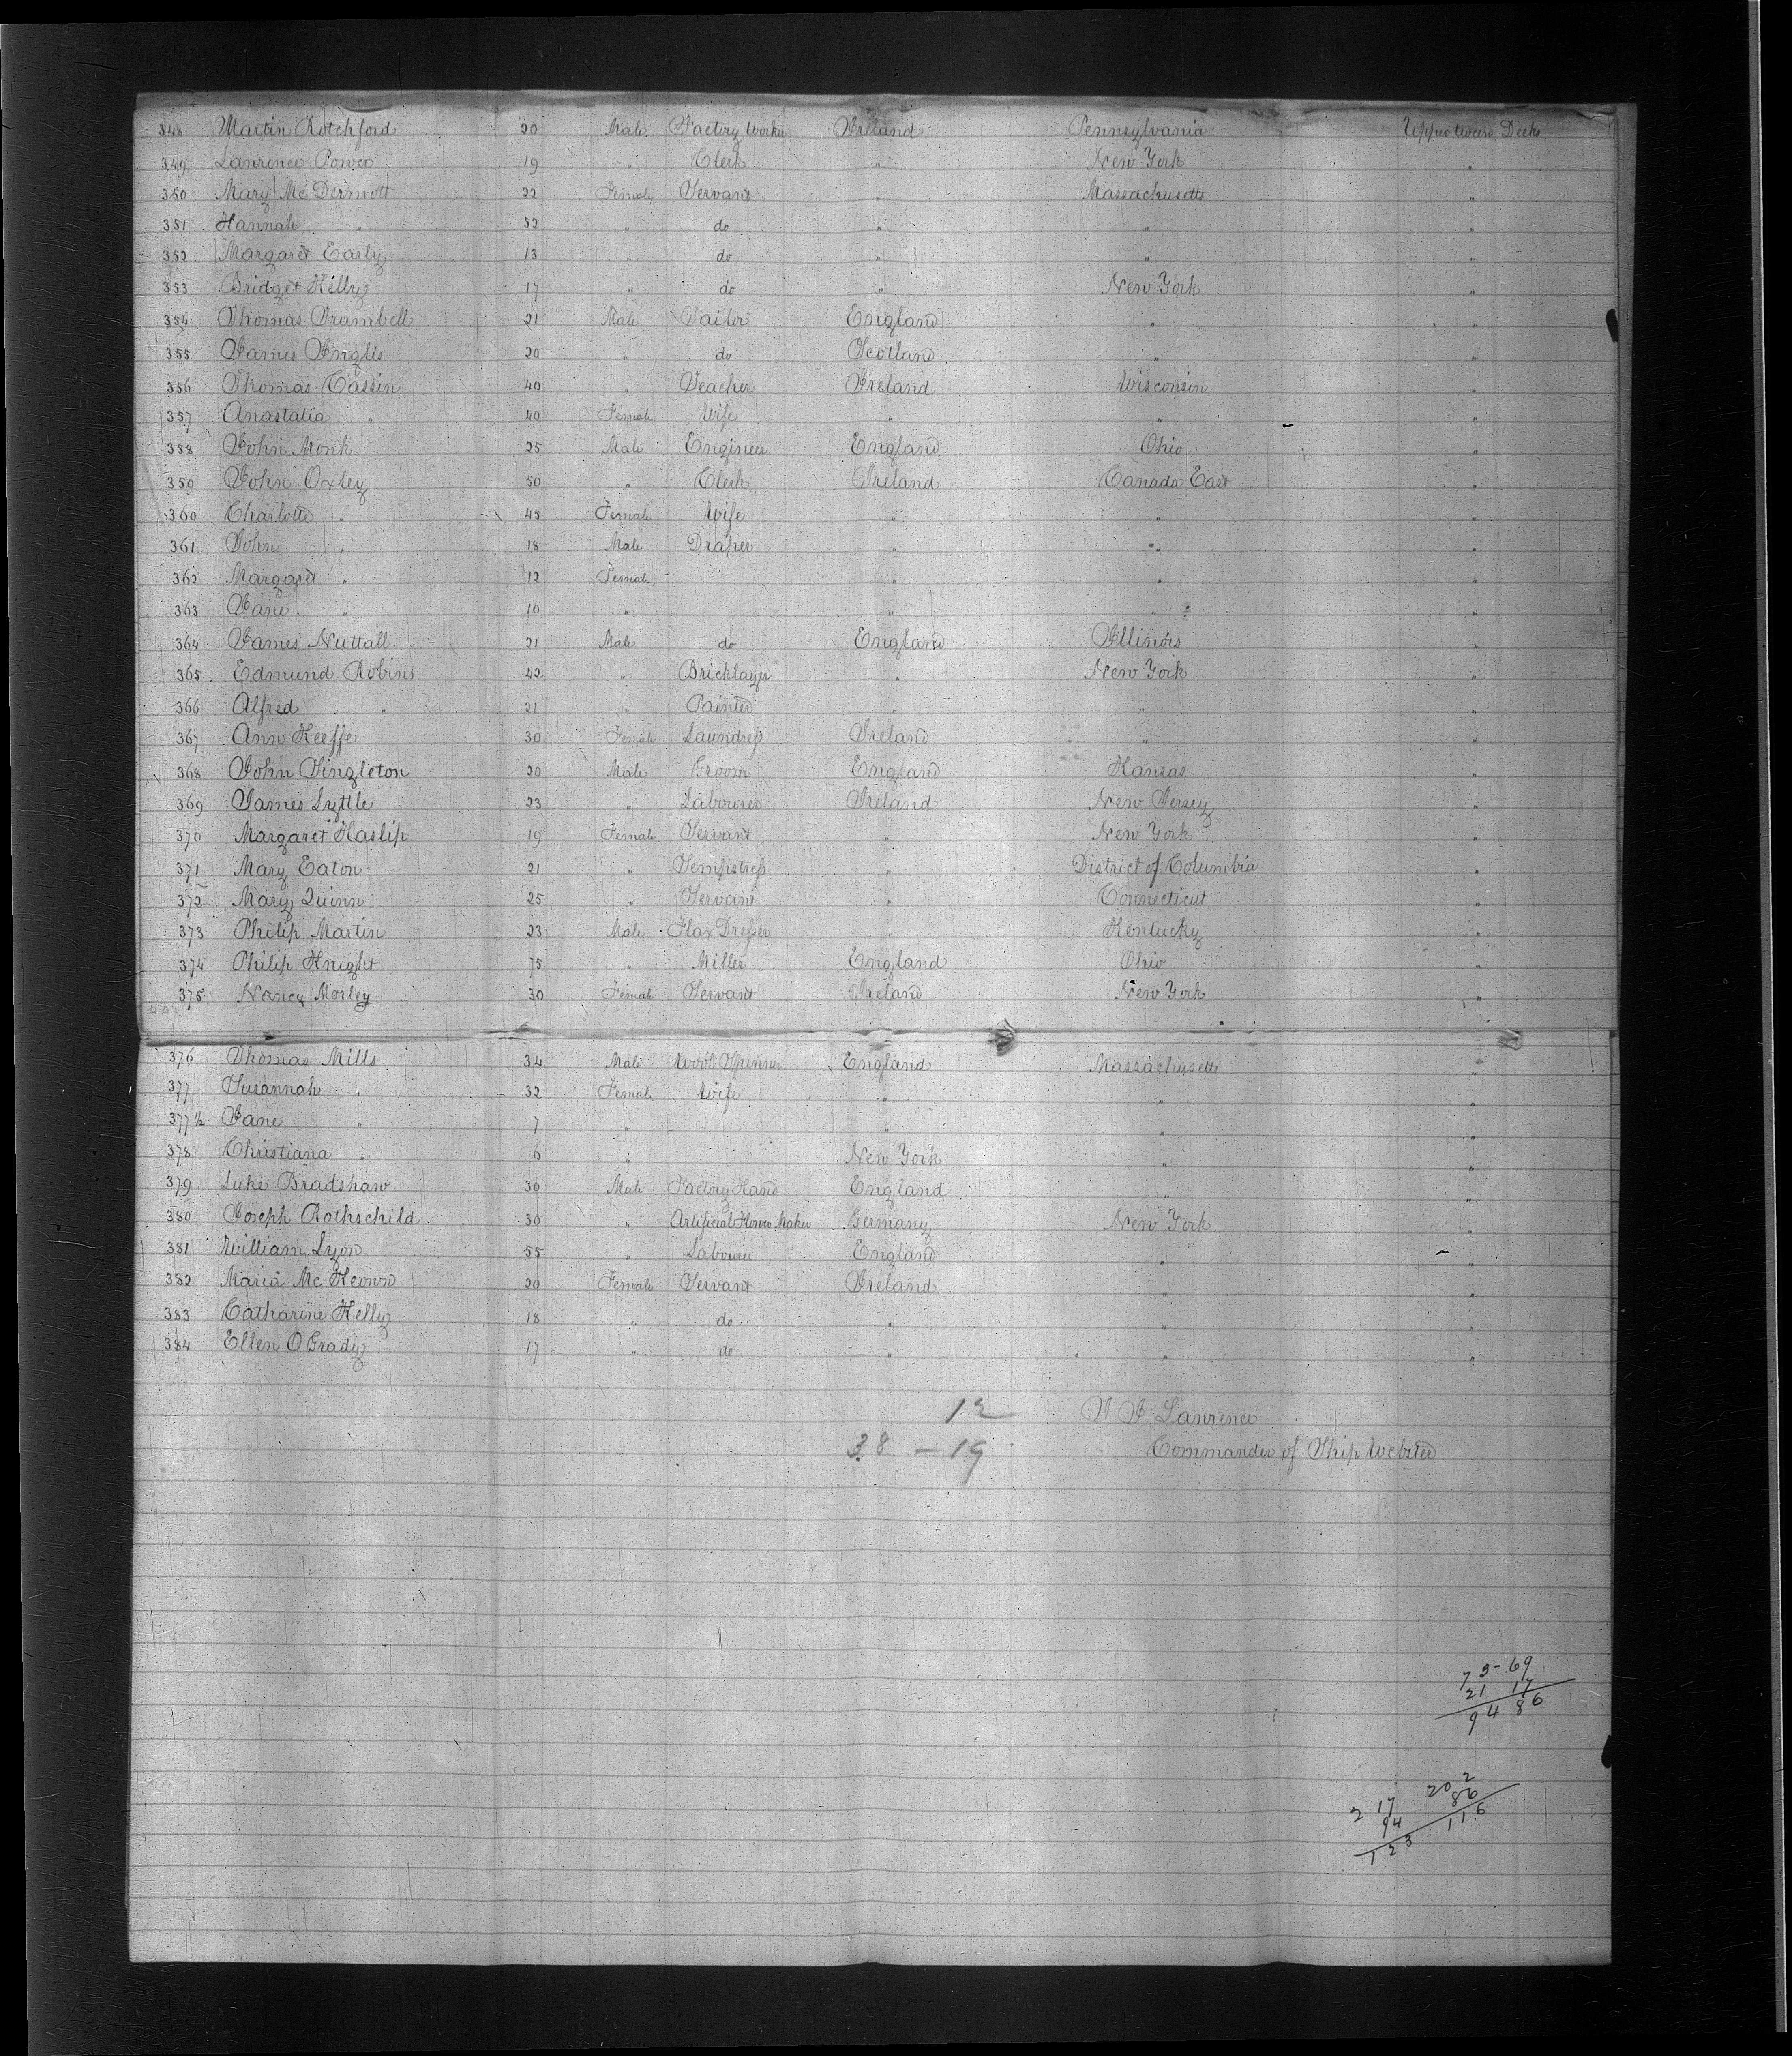 348 Martin Rotchford 20 Male Factory Worker Ireland Pennsylvania Upper tween Decks
349 Lawrence Power 19 " Clerk " New York "
350 Mary Mc Dermott 22 Female Servant " Massachusetts "
351 Hannah " 52 " do " " "
352 Margaret Early 13 " do " " "
353 Bridget Killy 17 " do " New York "
354 Thomas Trumbell 21 Male Tailor England " "
355 James Inglis 20 " do Scotland " "
356 Thomas Cassin 40 " Teacher Ireland Wisconsin "
357 Anastatia " 40 Female Wife " " "
358 John Monk 25 Male Engineer England Ohio "
359 John Oxley 50 " Clerk Ireland Canada East "
360 Charlotte " 45 Female Wife " " "
361 John " 18 Male Draper " " "
362 Margaret " 12 Female " " "
363 Jane " 10 " " " "
364 James Nuttall 21 Male do England Illinois "
365 Edmund Robins 42 " Bricklayer " New York "
366 Alfred " 21 " Painter " " "
367 Ann Keeffe 30 Female Laundress Ireland " "
368 John Singleton 20 Male Groom England Kansas "
369 James Lyttle 23 " Labourer Ireland New Jersey "
370 Margaret Haslip 19 Female Servant " New York "
371 Mary Eaton 21 " Sempstress " District of Columbia "
372 Mary Quinn 25 " Servant " Connecticut "
373 Philip Martin 23 Male Flax Dresser " Kentucky "
374 Philip Knight 75 " Miller England Ohio "
375 Nancy Morley 30 Female Servant Ireland New York "
376 Thomas Mills 34 Male Wool Spinner England Massachusetts "
377 Susannah " 32 Female Wife " " "
377½ Jane " 7 " " " "
378 Christiana " 6 " New York " "
379 Luke Bradshaw 30 Male Factory Hand England " "
380 Joseph Rothschild 30 " Artificial Flower Maker Germany New York "
381 William Lyon 55 " Labourer England " "
382 Maria Mc Keown 20 Female Servant Ireland " "
383 Catharine Kelly 18 " do " " "
384 Ellen O Grady 17 " do " " "
12 Lawrence
38 – 19 Commander of Ship Webster
73 - 69
21 17
94 86
2 17 20 2
94 86
123 116